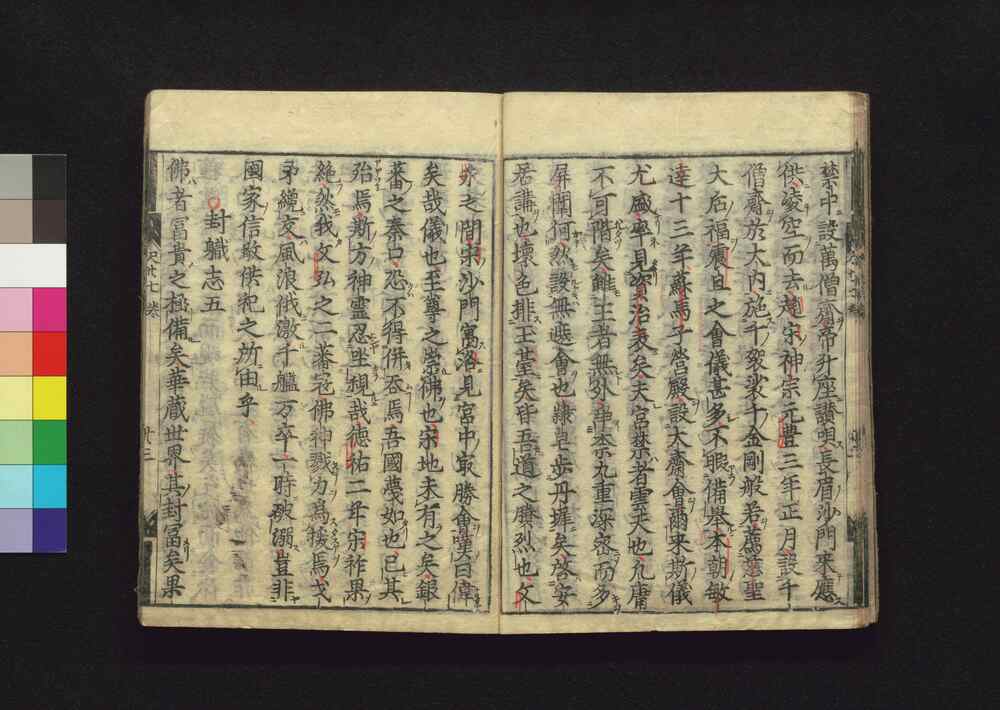 禁中設萬僧齋帝升座讃唄長眉沙門來應
供凌空而去趙宋神宗元豐三年正月設千
僧齋於大内施千袈裟千金剛般若薦慈聖
大后福震旦之會儀甚多不暇備擧本朝敏
達十三年蘇馬子營殿設大齋會爾來斯儀
尤盛率見資治表矣夫宮禁者雲天也凡庸
不可階矣雖王者無外華柰九重深密而多
屏闌何然設無遮會也隷皂步丹墀矣啓安
居講也壞色排玉墓矣皆吾道之廣烈也文
永之間宋沙門寓洛見宮中最勝會嘆曰偉
矣哉儀也至尊之崇佛也宋地未有之矣銀
蕃之奏口恐不得併吞焉吾國蔑如也已其
殆焉斯方神靈忍坐視哉德祐二年宋祚果
絶然我文弘之二蕃冦佛神戮力爲援焉戈
矛纔交風浪俄激千艦万卒一時破溺豈非
國家信敬供祀之所由乎
封職志五
佛者冨貴之極備矣華藏世界其封冨矣果
尺廿七 巻
廿三